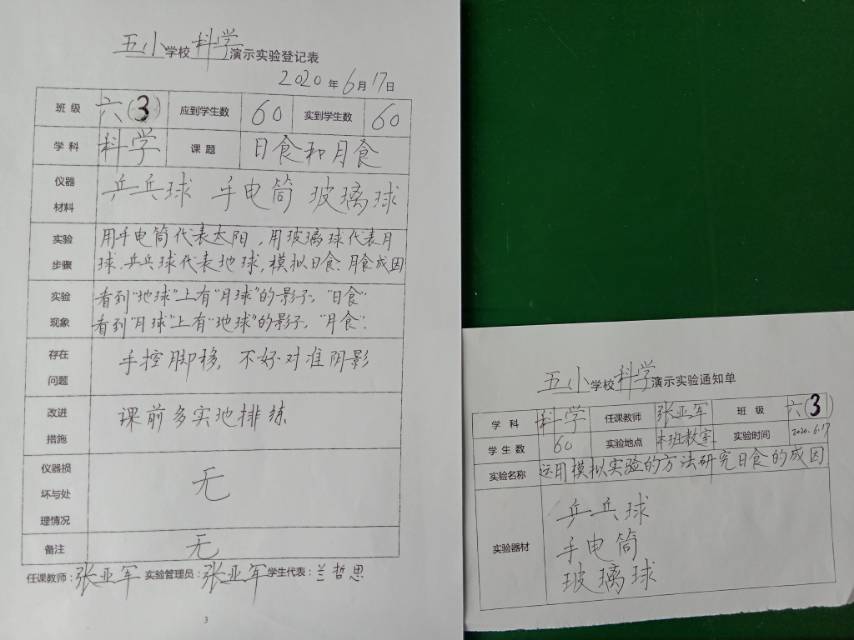 五小学校科学演示实验登记表
2020年6月17日
班级 六(3) 应到学生数 60 实到学生数 60
学科 科学 课题 日食和月食
仪器材料 乒乓球 手电筒 玻璃球
实验步骤 用手电筒代表太阳,用玻璃球代表月
球.乒乓球代表地球,模拟日食.月食成因
实验现象 看到"地球"上有"月球"的影子,"日食"
看到"月球"上有"地球"的影子,"月食".
存在问题 手控脚移,不好对准阴影
改进措施 课前多实地排练
仪器损坏与处理情况 无
备注 无
任课教师:张亚军 实验管理员:张亚军 学生代表:兰哲思
3
五小学校科学演示实验通知单
学科 科学 任课教师 张亚军 班级 六(3)
学生数 60 实验地点 本班教室 实验时间 2020.6.17
实验名称 运用模拟实验的方法研究日食的成因
实验器材 乒乓球
手电筒
玻璃球